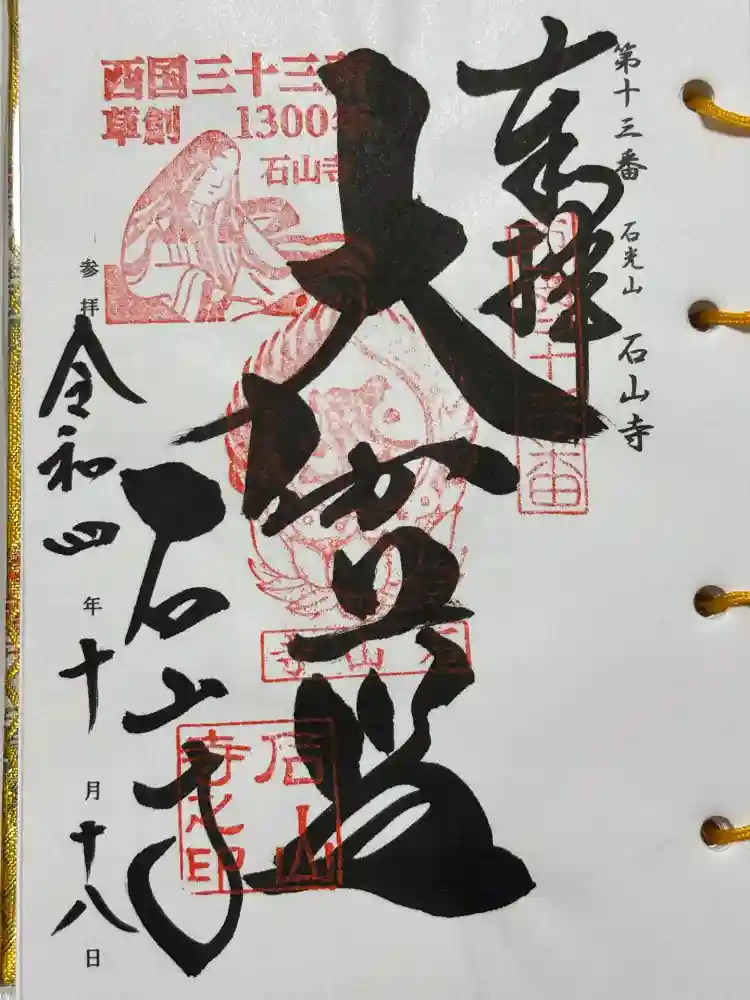 第十三番 石光山 石山寺
奉拝
西国十三番
大伽藍
西国三十三所
草創 1300年
石山寺
石山寺
石山寺
石山寺之印
参拝 令和四年十月十八日